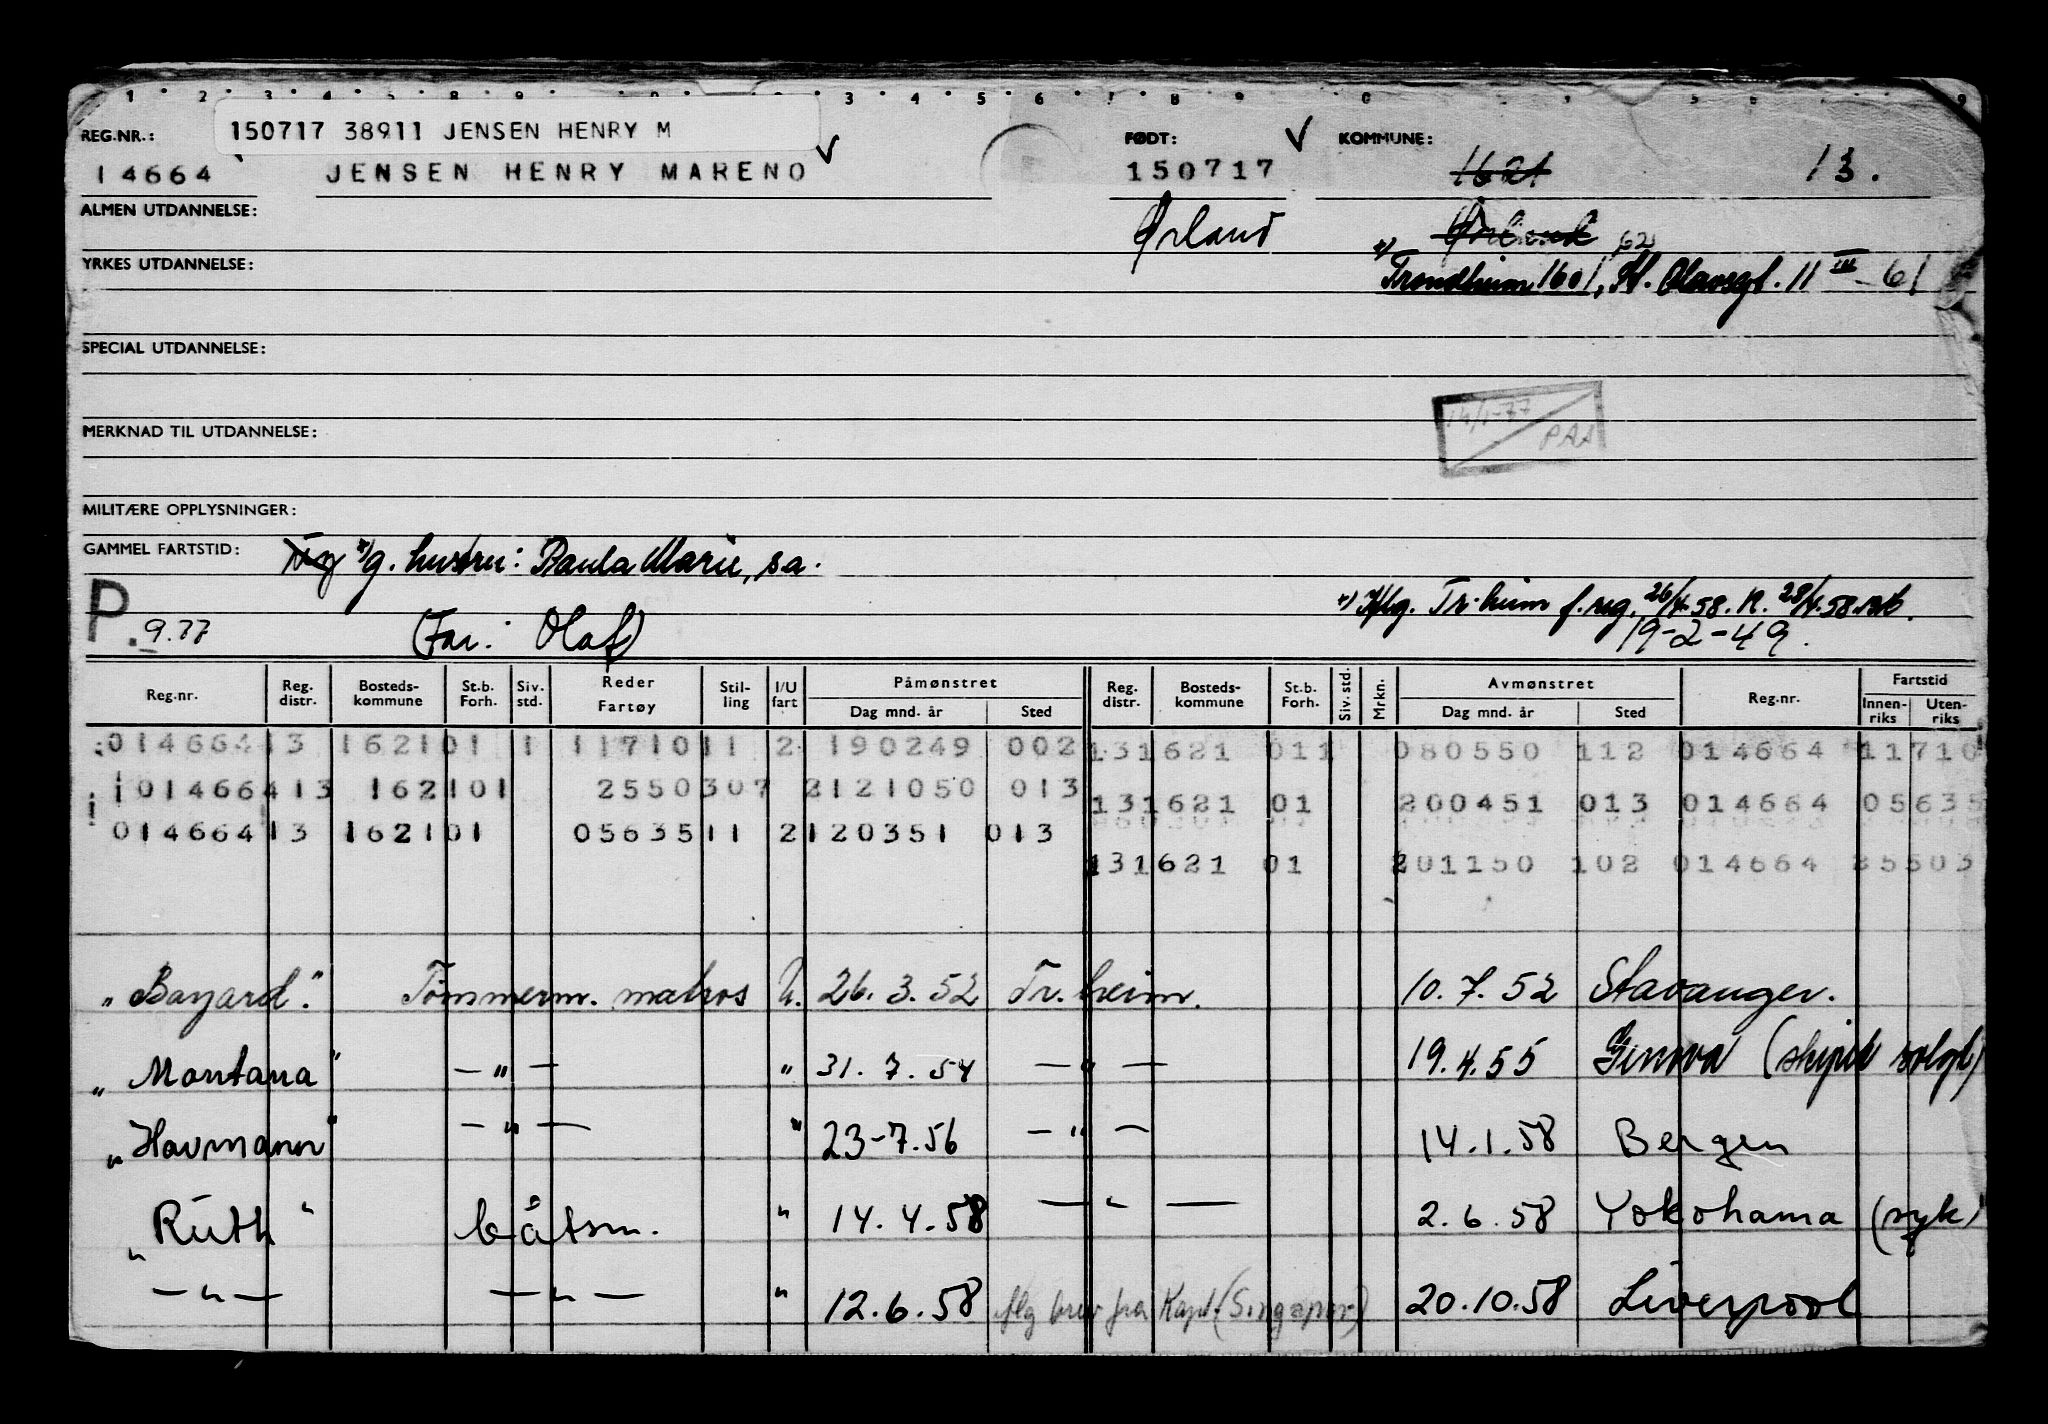 150717 38911 JENSEN HENRY M
REG.NR.: FØDT: KOMMUNE:
14664 JENSEN HENRY MARENO 150717 1621 13.
ALMEN UTDANNELSE: Ørland Ørland
YRKES UTDANNELSE: +) 62
Trondheim 1601, St. Olavsgt. 11 III - 61
SPECIAL UTDANNELSE:
14/1-77
PAA
MERKNAD TIL UTDANNELSE:
MILITÆRE OPPLYSNINGER:
GAMMEL FARTSTID: g. hustru: Paula Marie, sa.
+) Iflg. Tr.heim f. reg. 26/4.58. R. 28/4.58.
P. 9.77 (Far: Olaf) 19-2-49.
Reg.nr. Reg. distr. Bosteds-kommune St.b. Forh. Siv. std. Reder Fartøy Stil-ling I/U fart Påmønstret Dag mnd. år Sted Reg. distr. Bosteds-kommune St.b. Forh. Siv. std. Mrkn. Avmønstret Dag mnd. år Sted Reg.nr. Fartstid Innen-riks Uten-riks
014664 13 1621 01 1 11710 11 2 190249 002 13 1621 01 1 080550 112 014664 11710
014664 13 1621 01 25503 07 2 121050 013 13 1621 01 200451 013 014664 05635
014664 13 1621 01 05635 11 2 120351 013
13 1621 01 201150 102 014664 25503
"Bayard". Tømmerm. matros U. 26.3.52 Tr.heim. 10.7.52 Stavanger.
"Montana" — " — " 31.7.54 — " — 19.4.55 Genova (skipet solgt)
"Havmann" — " — " 23-7.56 — " — 14.1.58 Bergen
"Ruth" båtsm. " 14.4.58 — " — 2.6.58 Yokohama (syk)
— " — — " — " 12.6.58 iflg brev fra Kapt. (Singapor) 20.10.58 Liverpool